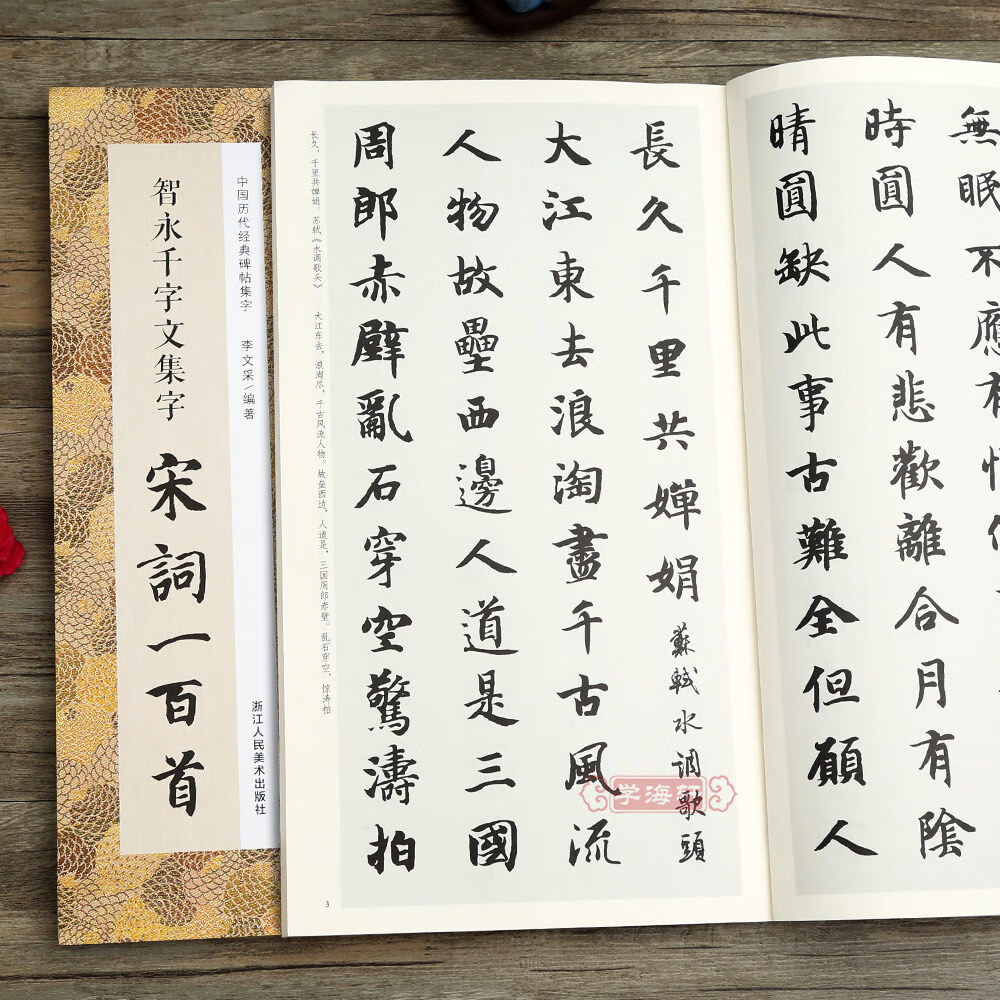 智永千字文集字
宋詞一百首
中国历代经典碑帖集字
李文采/编著
浙江人民美术出版社
無眠不應有
時圓人有悲歡離合月有陰
晴圓缺此事古難全但願人
長久千里共嬋娟
蘇軾水調歌頭
大江東去浪淘盡千古風流
人物故壘西邊人道是三國
周郎赤壁亂石穿空驚濤拍
长久，千里共婵娟。苏轼《水调歌头》 大江东去，浪淘尽，千古风流人物。故垒西边，人道是，三国周郎赤壁。乱石穿空，惊涛拍
3
学海轩